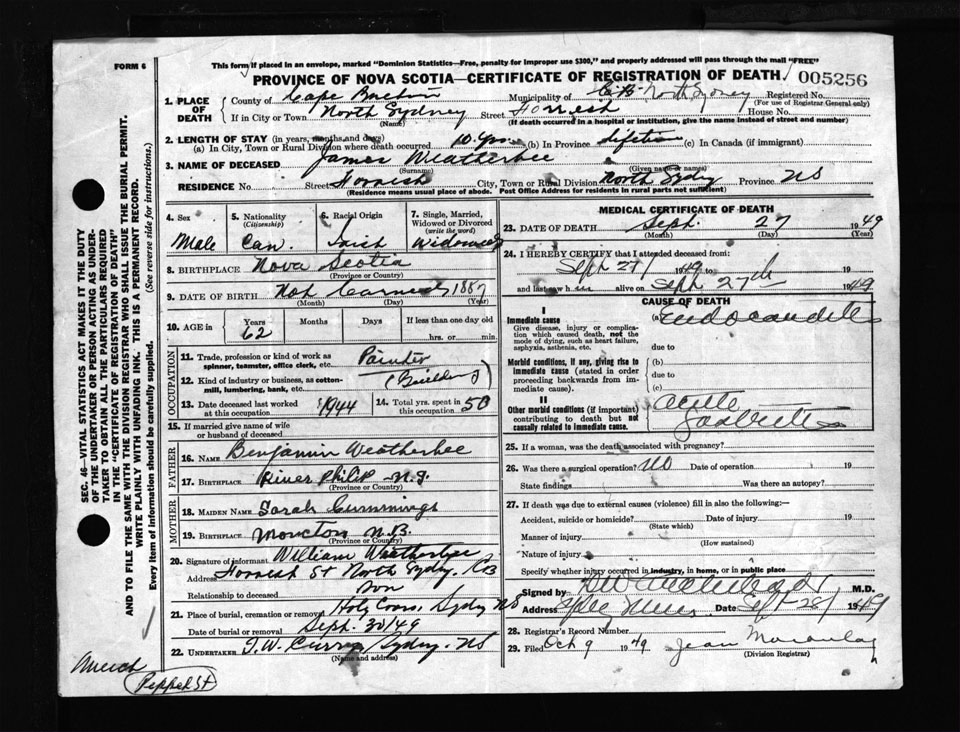 FORM 6
This form if placed in an envelope, marked "Dominion Statistics—Free, penalty for improper use $300," and properly addressed will pass through the mail "FREE"
PROVINCE OF NOVA SCOTIA—CERTIFICATE OF REGISTRATION OF DEATH
005256
1. PLACE OF DEATH
County of Cape Breton Municipality of C.B. North Sydney Registered No.
(For use of Registrar General only)
If in City or Town North Sydney Street House No.
(Name) (If death occurred in a hospital or institution, give the name instead of street and number)
2. LENGTH OF STAY (in years, months and days)
(a) In City, Town or Rural Division where death occurred 10 yrs. (b) In Province lifetime (c) In Canada (if immigrant)
3. NAME OF DECEASED James Weatherbee
(Surname) (Given name or names)
RESIDENCE No. Street City, Town or Rural Division North Sydney Province NS
(Residence means usual place of abode. Post Office Address for residents in rural parts not sufficient)
4. Sex Male
5. Nationality (Citizenship) Can.
6. Racial Origin Irish
7. Single, Married, Widowed or Divorced (write the word) Widowed
8. BIRTHPLACE Nova Scotia
(Province or Country)
9. DATE OF BIRTH Not Learned 1887
(Month) (Day) (Year)
10. AGE in Years Months Days If less than one day old
62 hrs. or min.
OCCUPATION
11. Trade, profession or kind of work as spinner, teamster, office clerk, etc. Painter
12. Kind of industry or business, as cotton-mill, lumbering, bank, etc. (Building)
13. Date deceased last worked at this occupation 1944
14. Total yrs. spent in this occupation 50
15. If married give name of wife or husband of deceased
FATHER
16. NAME Benjamin Weatherbee
17. BIRTHPLACE River Philip N.S.
(Province or Country)
MOTHER
18. MAIDEN NAME Sarah Cummings
19. BIRTHPLACE Moncton N.B.
(Province or Country)
20. Signature of informant William Weatherbee
Address St North Sydney. CB
Relationship to deceased son
21. Place of burial, cremation or removal Holy Cross, Sydney NS
Date of burial or removal Sept. 30/49
22. UNDERTAKER T.W. Curry, Sydney. NS
(Name and address)
MEDICAL CERTIFICATE OF DEATH
23. DATE OF DEATH Sept. 27 1949
(Month) (Day) (Year)
24. I HEREBY CERTIFY that I attended deceased from:
Sept 27/ 1949 to 19
and last saw h alive on Sept 27th 1949
CAUSE OF DEATH
I
Immediate cause (a) Endocarditis
Give disease, injury or complication which caused death, not the mode of dying, such as heart failure, asphyxia, asthenia, etc.
due to
Morbid conditions, if any, giving rise to immediate cause (stated in order proceeding backwards from immediate cause).
(b)
due to
(c)
II
Other morbid conditions (if important) contributing to death but not causally related to immediate cause.
Acute
Gastritis
25. If a woman, was the death associated with pregnancy?
26. Was there a surgical operation? No Date of operation 19
State findings Was there an autopsy?
27. If death was due to external causes (violence) fill in also the following:—
Accident, suicide or homicide? Date of injury 19
(State which)
Manner of injury
(How sustained)
Nature of injury
Specify whether injury occurred in industry, in home, or in public place
Signed by M.D.
Address Date Sept 28/ 1949
28. Registrar's Record Number
29. Filed Oct 9 1949 Jean Macaulay
(Division Registrar)
SEC. 46—VITAL STATISTICS ACT MAKES IT THE DUTY
OF THE UNDERTAKER OR PERSON ACTING AS UNDER-
TAKER TO OBTAIN ALL THE PARTICULARS REQUIRED
IN THE "CERTIFICATE OF REGISTRATION OF DEATH"
AND TO FILE THE SAME WITH THE DIVISION REGISTRAR WHO SHALL ISSUE THE BURIAL PERMIT.
WRITE PLAINLY WITH UNFADING INK. THIS IS A PERMANENT RECORD.
Every item of information should be carefully supplied. (See reverse side for instructions.)
Amend
Pepper St